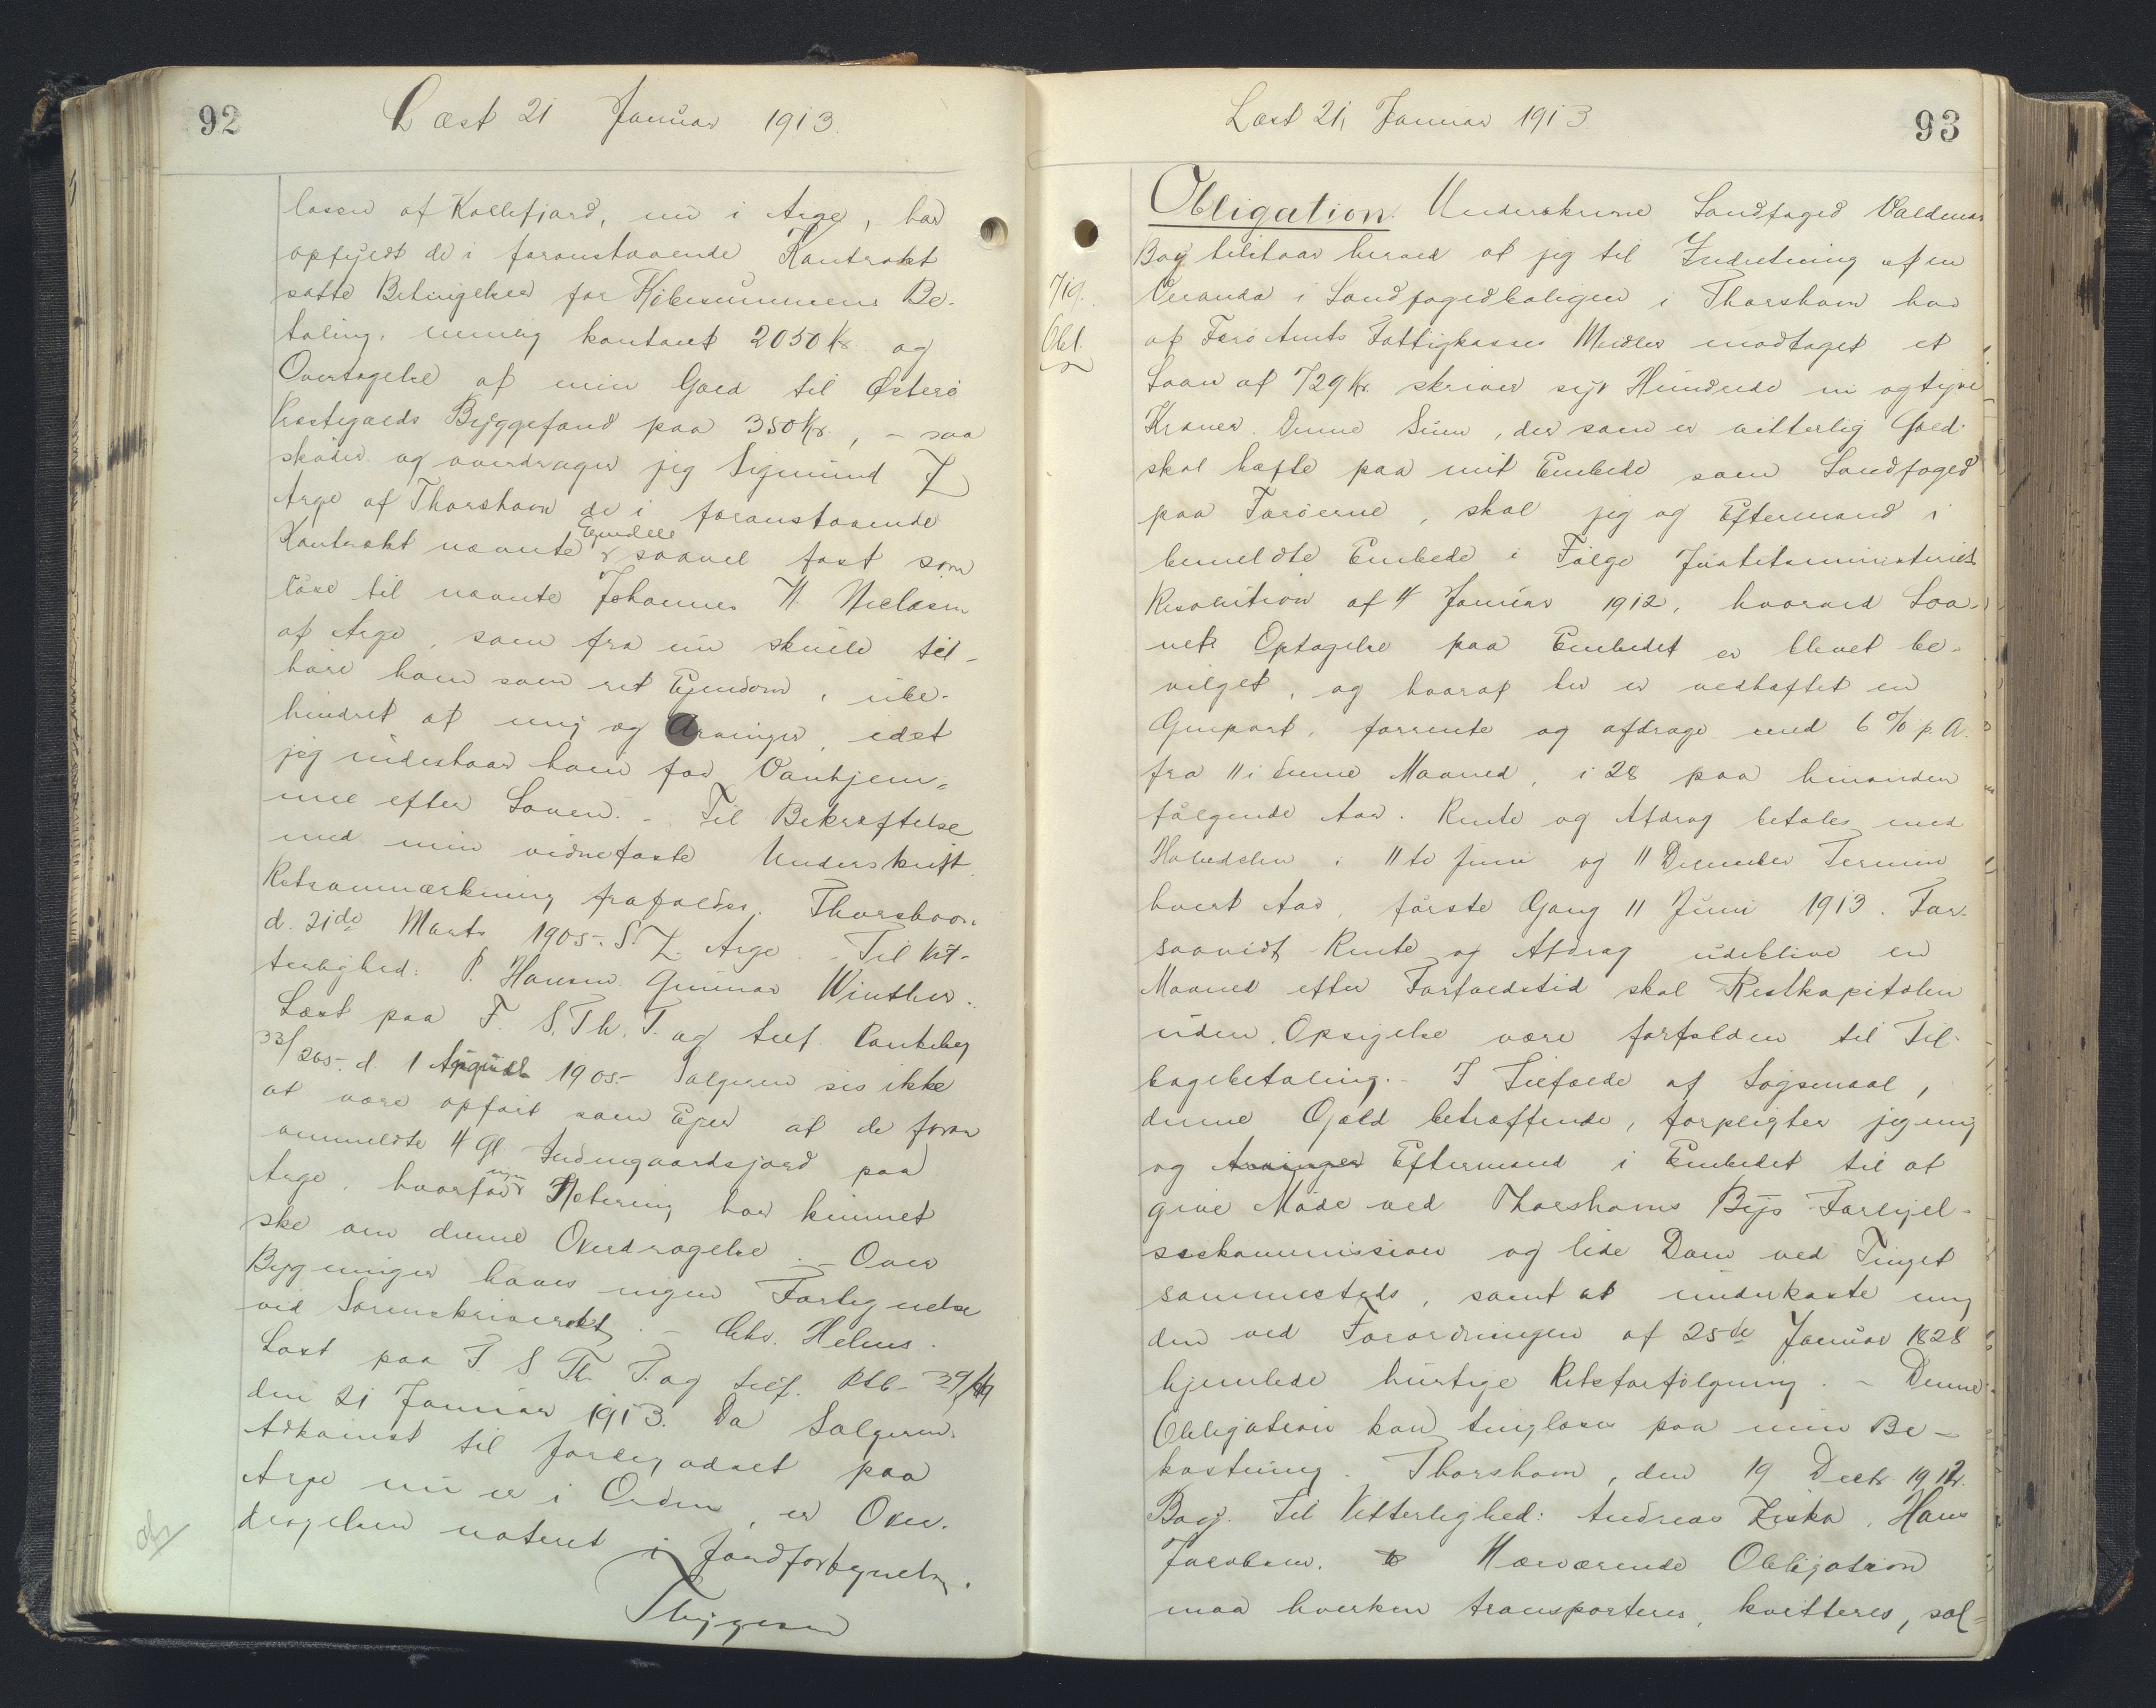 92
Læst 21 Januar 1913.
lassen af Kollefjord, nu i Arge, har
opfyldt de i foranstaaende Kontrakt
satte Betingelser for Købesummens Be-
taling, nemlig kontant 2050 Kr og
Overtagelse af min Gæld til Østerø
Præstegjælds Byggefond paa 350 Kr, – saa
skøder og overdrager jeg Sigmund Z
Arge af Thorshavn de i foranstaaende
Kontrakt nævnte Ejendele saavel fast som
løse til nævnte Johannes H. Niclasen
af Arge, som fra nu skulle til-
høre ham som ret Ejendom, ube-
hindret af mig og Arvinger, idet
jeg indestaar ham for Vanhjem-
mel efter Loven. – Til Bekræftelse
med min vidnefaste Underskrift.
Retsanmærkning frafaldes. Thorshavn
d. 21de Marts 1905. S. Z. Arge. – Til Vit-
terlighed: P. Hansen Gunnar Winther.
Læst paa F. S. Th. T. og tilf. Pantebog
33/265. d. 1 August 1905 – Sælgeren ses ikke
at være opført som Ejer af de foran
ommeldte 4 Gl. Indengaardsjord paa
Arge, hvorfor ingen Notering har kunnet
ske om denne Overdragelse. – Over
Bygninger haves ingen Fortegnelse
ved Sorenskriveriet. – Chr. Helms.
Læst paa F. S Th. T. og tilf. Ptb.
den 21 Januar 1913. Da Sælgerens
Adkomst til Jordegodset paa
Arge nu er i Orden, er Over-
dragelsen noteret i Jordfortegnelsen.
Thygesen
93
Læst 21, Januar 1913
Obligation. Underskrevne Landfoged Valdemar
Bøg tilstaar herved at jeg til Indretning af en
719.
Veranda i Landfogedboligen i Thorshavn har
Obl.
af Færø Amts Fattigkasses Midler modtaget et
Laan af 729 Kr. skriver syv Hundrede ni og tyve
Kroner. Denne Sum, der som er vitterlig Gæld
skal hæfte paa mit Embede som Landfoged
paa Færøerne, skal jeg og Eftermand i
bemeldte Embede i Følge Justitsministeriets
Resolution af 4 Januar 1912, hvorved Laa-
nets Optagelse paa Embedet er blevet be-
vilget, og hvoraf her er vedhæftet en
Genpart, forrente og afdrage med 6 % p. A.
fra 11 i denne Maaned, i 28 paa hinanden
følgende Aar. Rente og Afdrag betales med
Halvdelen i 11te Juni og 11 December Termin
hvert Aar, første Gang 11 Juni 1913. For-
saavidt Rente og Afdrag udeblive en
Maaned efter Forfaldstid skal Restkapitalen
uden Opsigelse være forfalden til Til-
bagebetaling. – I Tilfælde af Søgsmaal,
denne Gæld betræffende, forpligter jeg mig
og Arvinger Eftermand i Embedet til at
give Møde ved Thorshavns Bys Forligel-
seskommission og lide Dom ved Tinget
sammesteds, samt at underkaste mig
den ved Forordningen af 25de Januar 1828
hjemlede hurtige Retsforfølgning. – Denne
Obligation kan tinglæses paa min Be-
kostning. Thorshavn, den 19 Decbr. 1912.
Bøg. Til Vitterlighed: Andreas Ziska. Hans
Jacobsen. Nærværende Obligation
maa hverken transporteres, kvitteres, sæl-